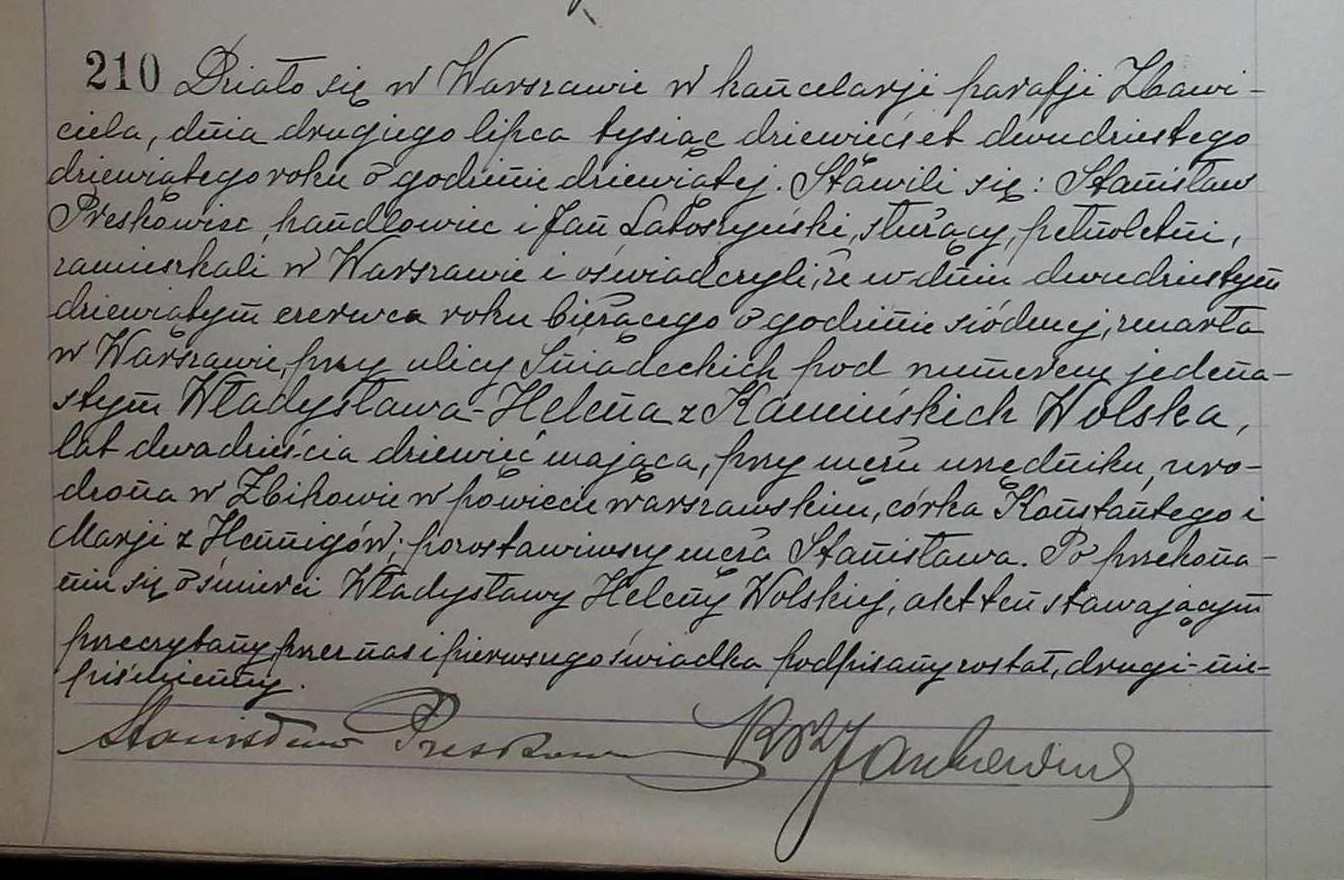 210 Działo się w Warszawie w kancelarji parafji Zbawi-
ciela, dnia drugiego lipca tysiąc dziewięćset dwudziestego
dziewiątego roku o godzinie dziewiątej. Stawili się: Stanisław
handlowiec i Jan Latoszyński, służący, pełnoletni,
zamieszkali w Warszawie i oświadczyli, że w dniu dwudziestym
dziewiątym czerwca roku bieżącego o godzinie siódmej, zmarła
w Warszawie, przy ulicy Śniadeckich pod numerem jedena-
stym Władysława-Helena z Kamińskich Wolska,
lat dwadzieścia dziewięć mająca, przy mężu urzędniku, uro-
dzona w Zbikowie w powiecie warszawskim, córka Konstantego i
Marji z Hennigów; pozostawiwszy męża Stanisława. Po przekona-
niu się o śmierci Władysławy Heleny Wolskiej, akt ten stawającym
przeczytany, przez nas i pierwszego świadka podpisany został, drugi-nie-
piśmienny.
Stanisław